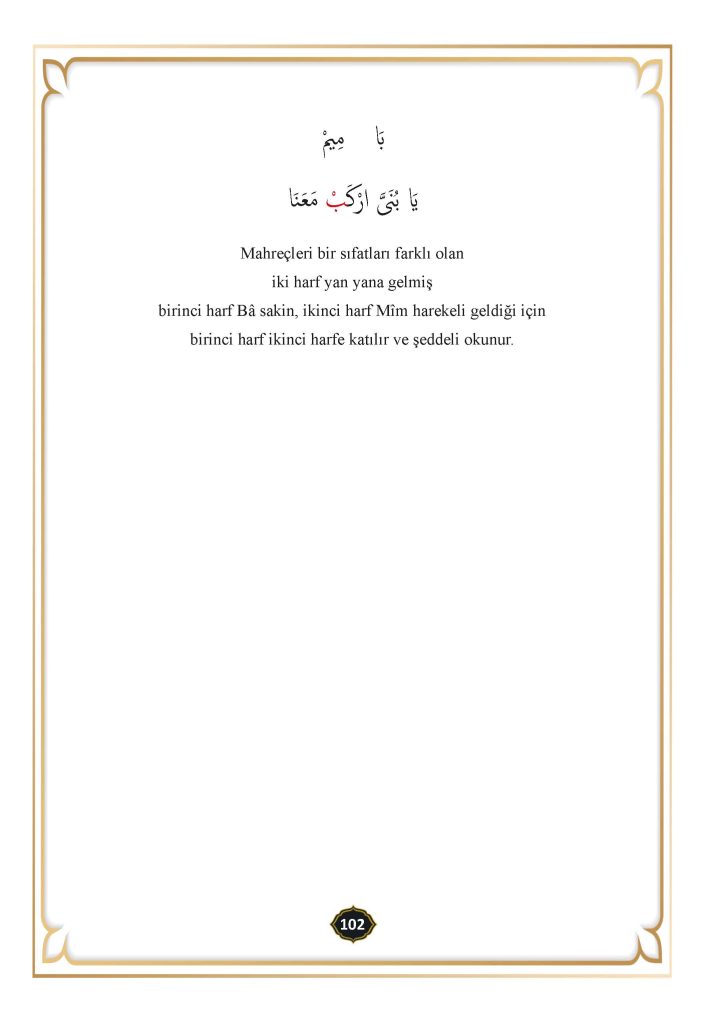 بَا مِيمْ
يَا بُنَىَّ ارْكَبْ مَعَنَا
Mahreçleri bir sıfatları farklı olan
iki harf yan yana gelmiş
birinci harf Bâ sakin, ikinci harf Mîm harekeli geldiği için
birinci harf ikinci harfe katılır ve şeddeli okunur.
102